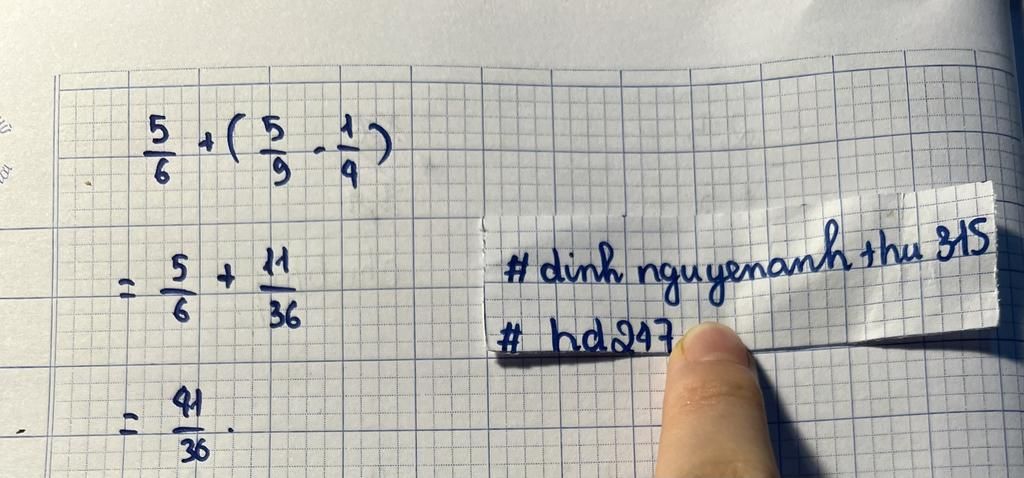 5/6 + (5/9 - 1/4)
= 5/6 + 11/36
= 41/36.
# dinh nguyenanh thu 315
# hd247